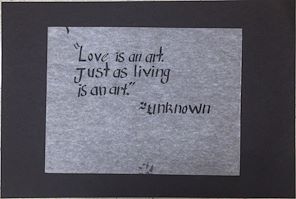 "Love is an art.
Just as living
is an art."
~unknown